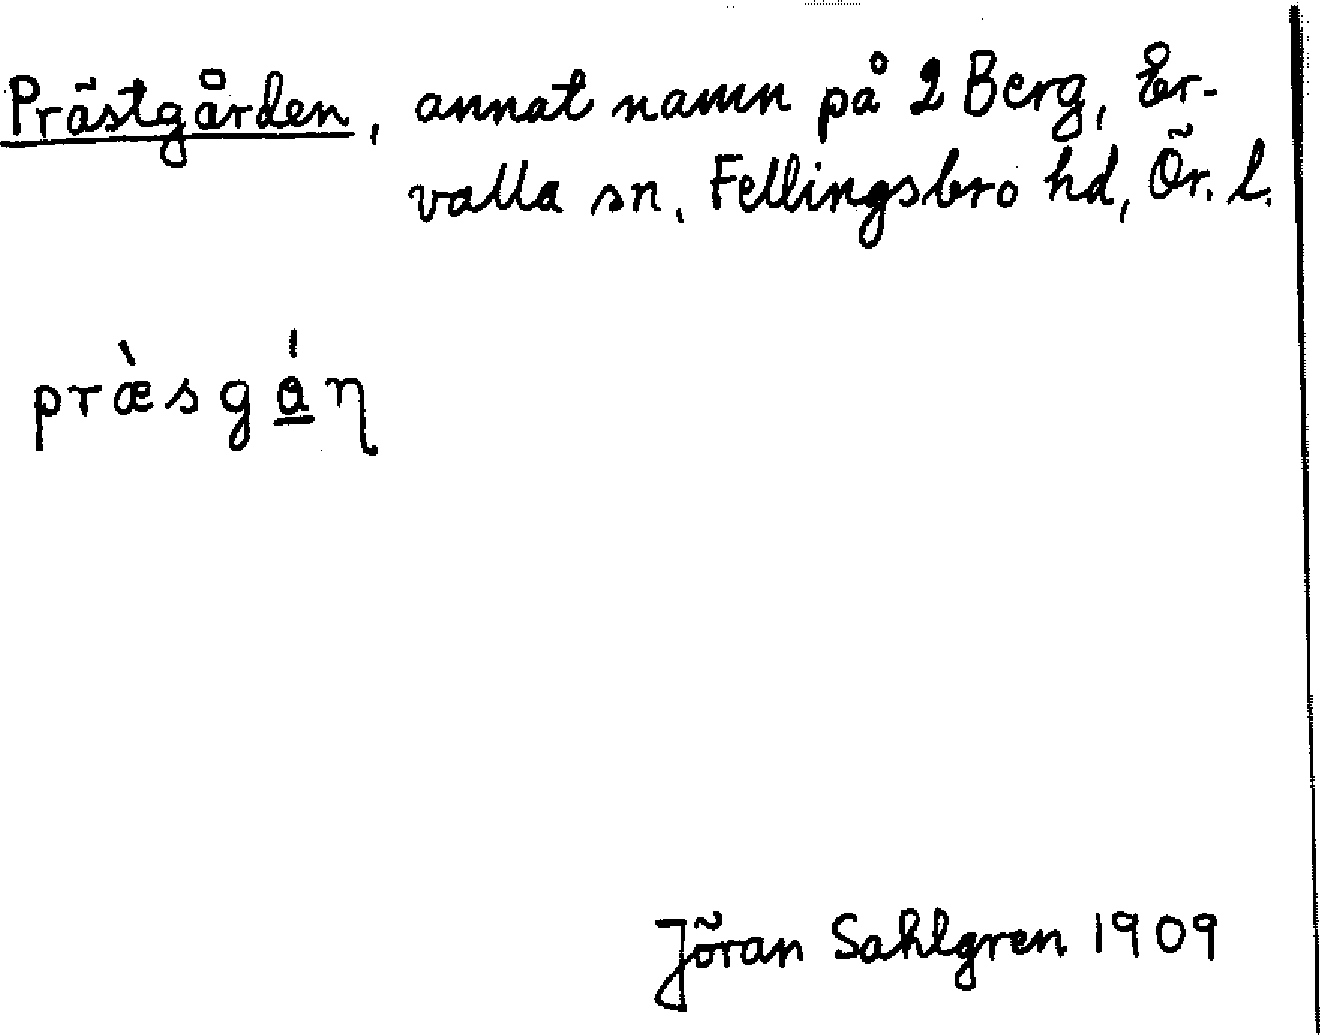 Prästgården, annat namn på 2 Berg, Er-
valla sn, Fellingsbro hd, Ör. l.
præ̀sgá̲ꞃ
Jöran Sahlgren 1909